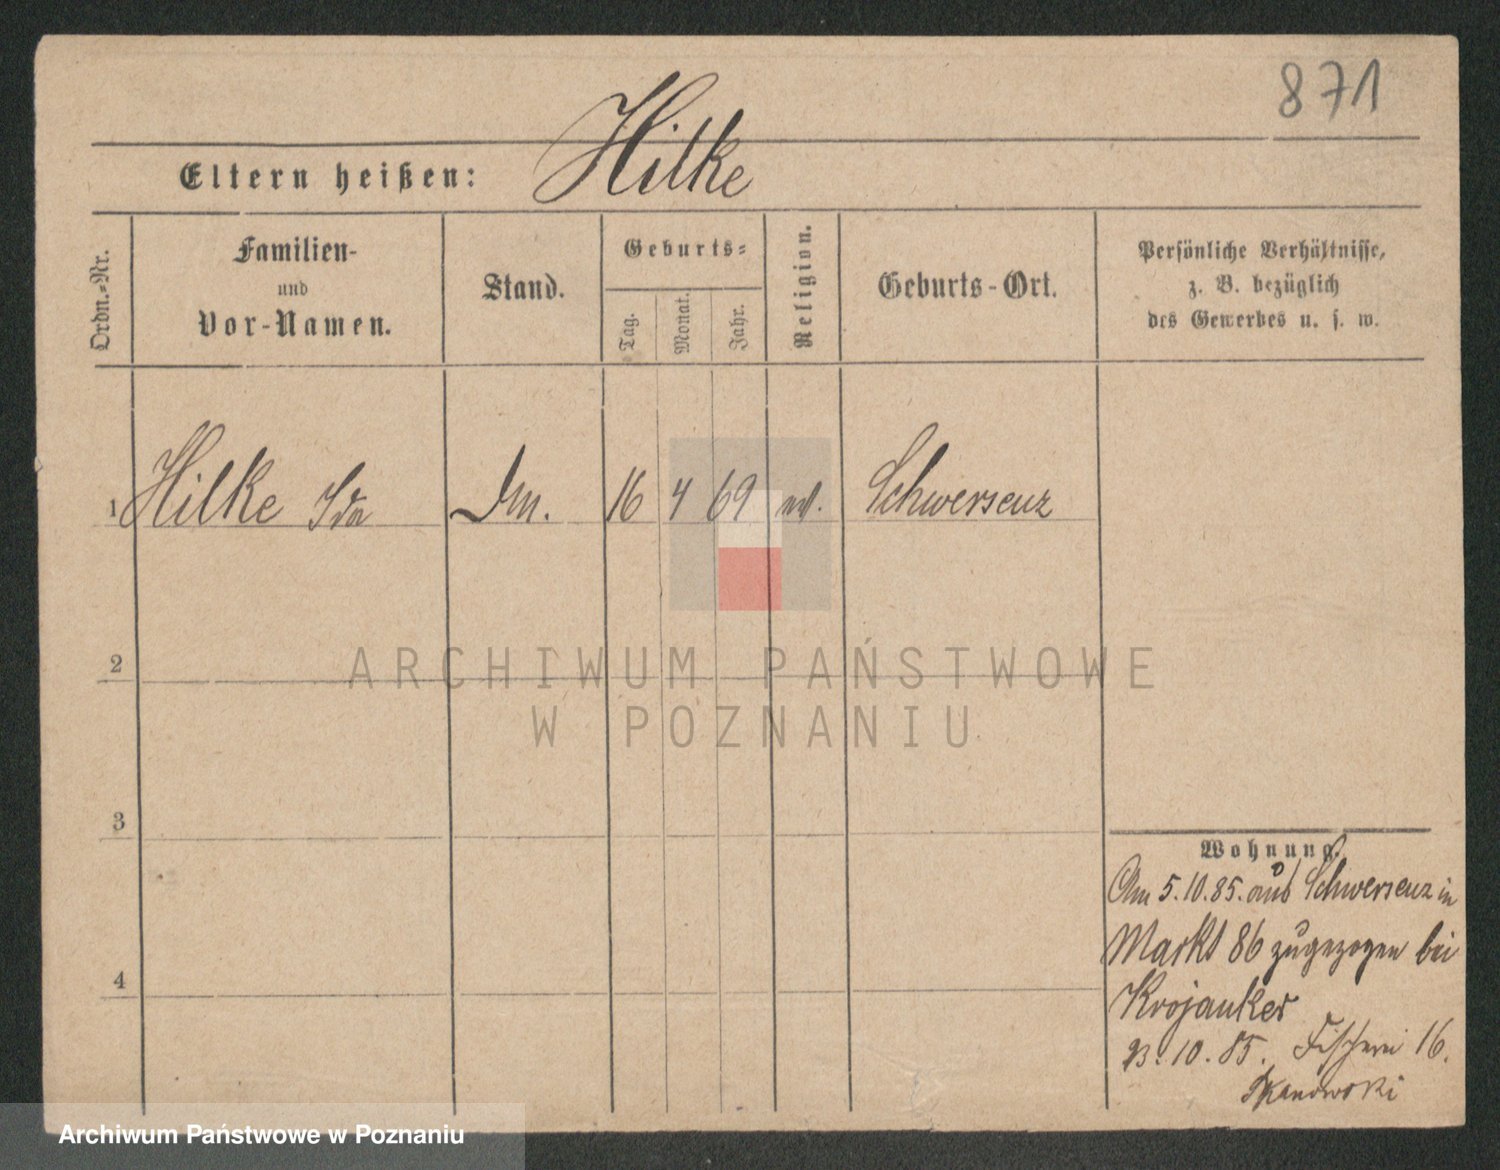 871
Hilke
Eltern heißen:
Ordn.-Nr.
Familien-
und
Vor-Namen.
Stand.
Geburts-
Tag.
Monat.
Jahr.
Religion.
Geburts-Ort.
Persönliche Verhältnisse,
z. B. bezüglich
des Gewerbes u. s. w.
1 Hilke Ida 16 4 69 Schwersenz
2
3
4
ARCHIWUM PAŃSTWOWE
W POZNANIU
Wohnung.
Am 5.10.85. aus Schwersenz in
Markt 86 zugezogen bei
Krojanker
23.10.85. Fischerei 16.
Archiwum Państwowe w Poznaniu